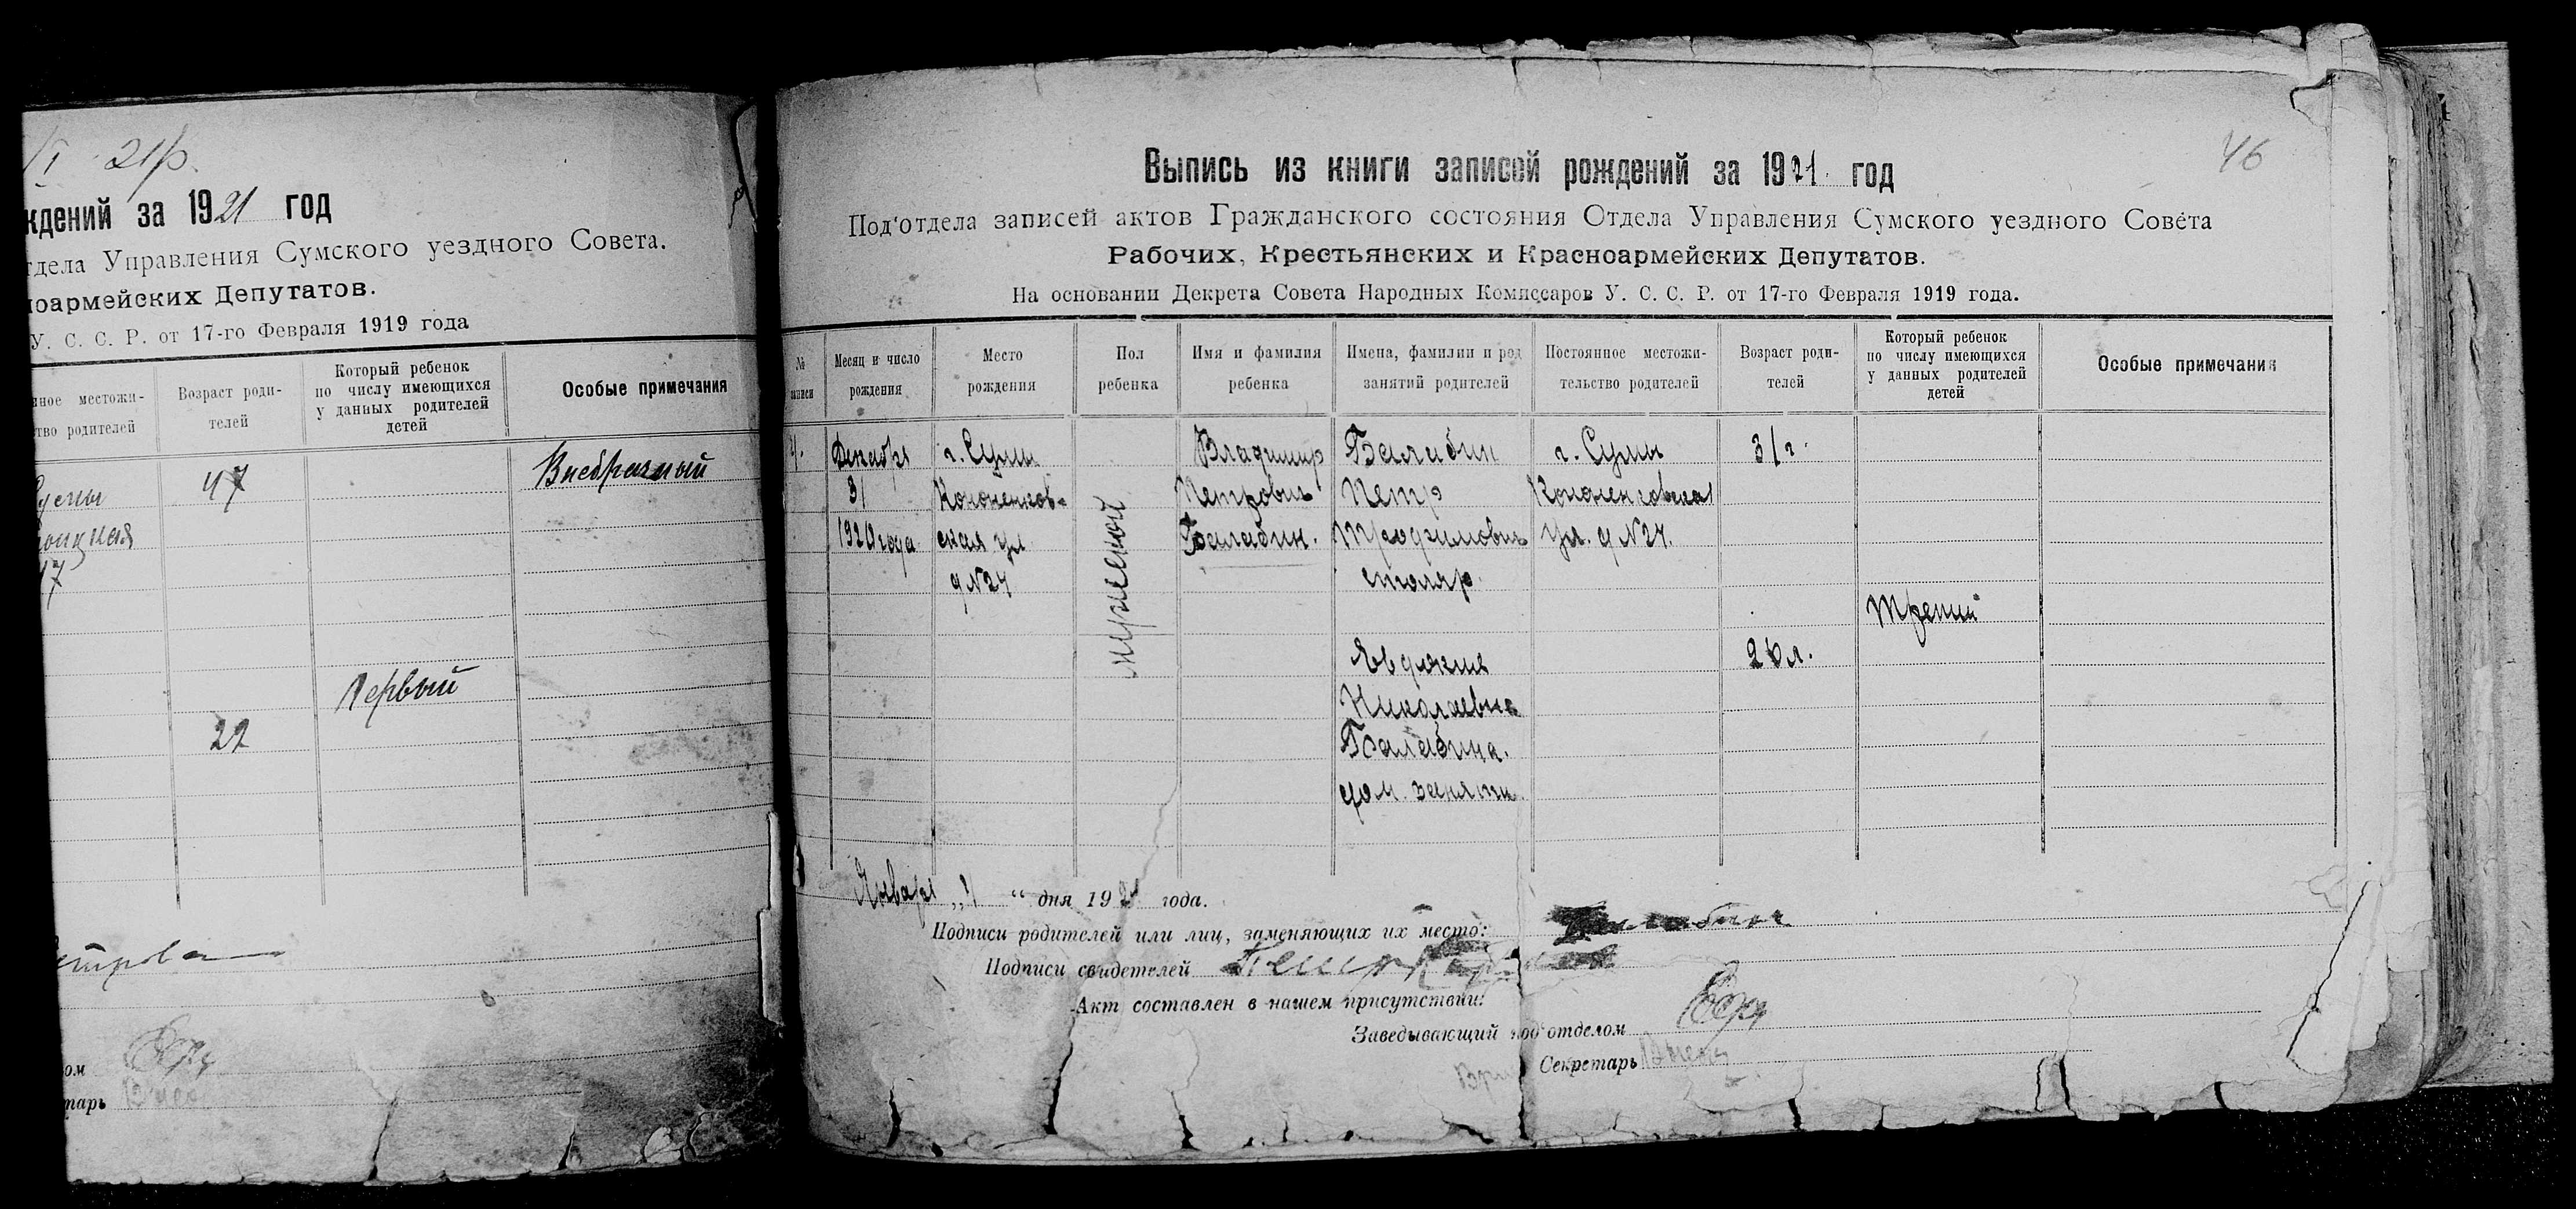 21р.
ждений за 1921 год
тдела Управления Сумского уездного Совета.
ноармейских Депутатов.
У. С. С. Р. от 17-го Февраля 1919 года
нное местожи-
тво родителей
Возраст роди-
телей
Который ребенок
по числу имеющихся
у данных родителей
детей
Особые примечания
47
Внебрачный
17
Первый
22
етрова
ом
тарь
46
Выпись из книги записей рождений за 1921 год
Под'отдела записей актов Гражданского состояния Отдела Управления Сумского уездного Совета
Рабочих, Крестьянских и Красноармейских Депутатов.
На основании Декрета Совета Народных Комиссаров У. С. С. Р. от 17-го Февраля 1919 года.
№
записи
Месяц и число
рождения
Место
рождения
Пол
ребенка
Имя и фамилия
ребенка
Имена, фамилии и род
занятий родителей
Постоянное местожи-
тельство родителей
Возраст роди-
телей
Который ребенок
по числу имеющихся
у данных родителей
детей
Особые примечания
Декабря
31
1920 года
г. Сумы
Кононенков-
ская ул
д №24
мужской
Владимир
Петрович
Балабин.
Балабин
Петр
Трофимович
столяр.
Евдокия
Николаевна
Балабина.
дом. заняти
г. Сумы
Кононенковская
ул. д №24.
31 г.
26 л.
Третий
Января „ “ дня 1921 года.
Подписи родителей или лиц, заменяющих их место: Балабин
Подписи свидетелей
Акт составлен в нашем присутствии:
Заведывающий под'отделом
Секретарь